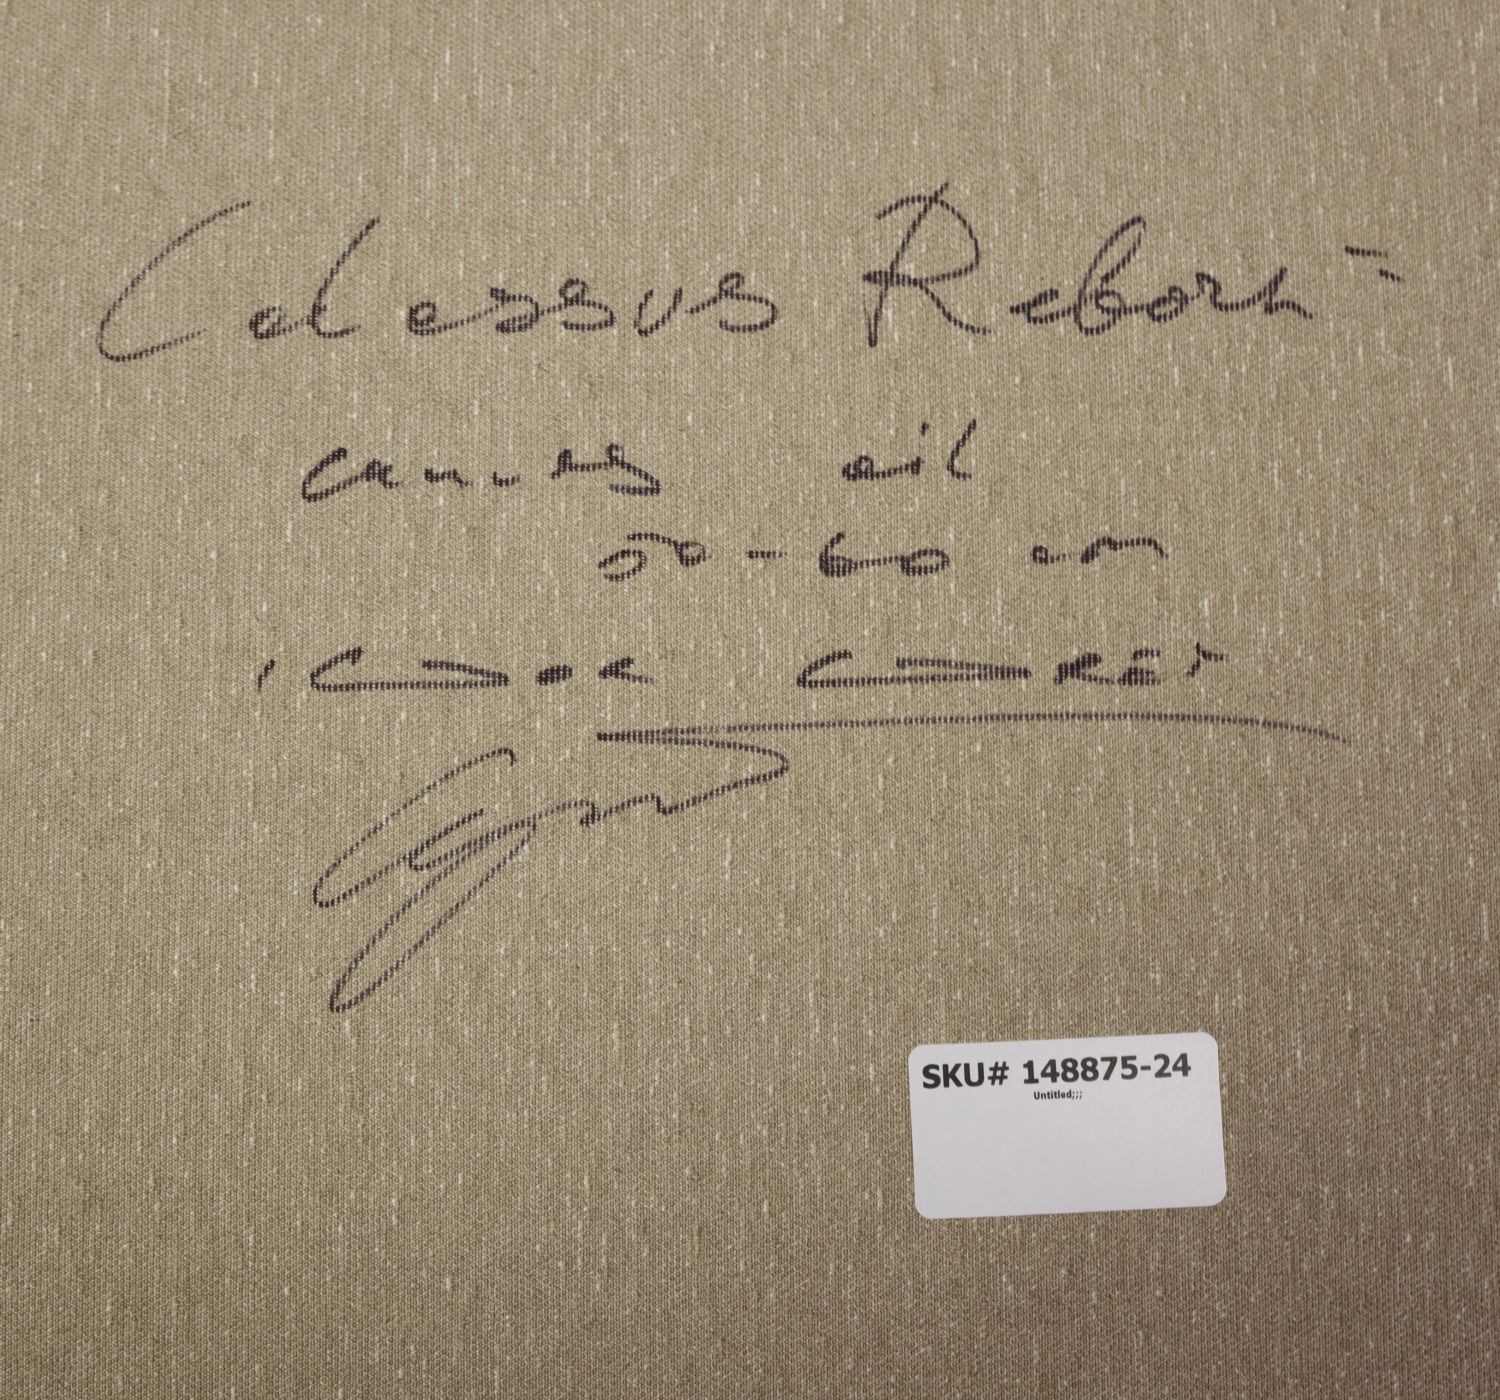 Colossus Reborn
canvas oil
50-60 cm
SKU# 148875-24
Untitled;;;